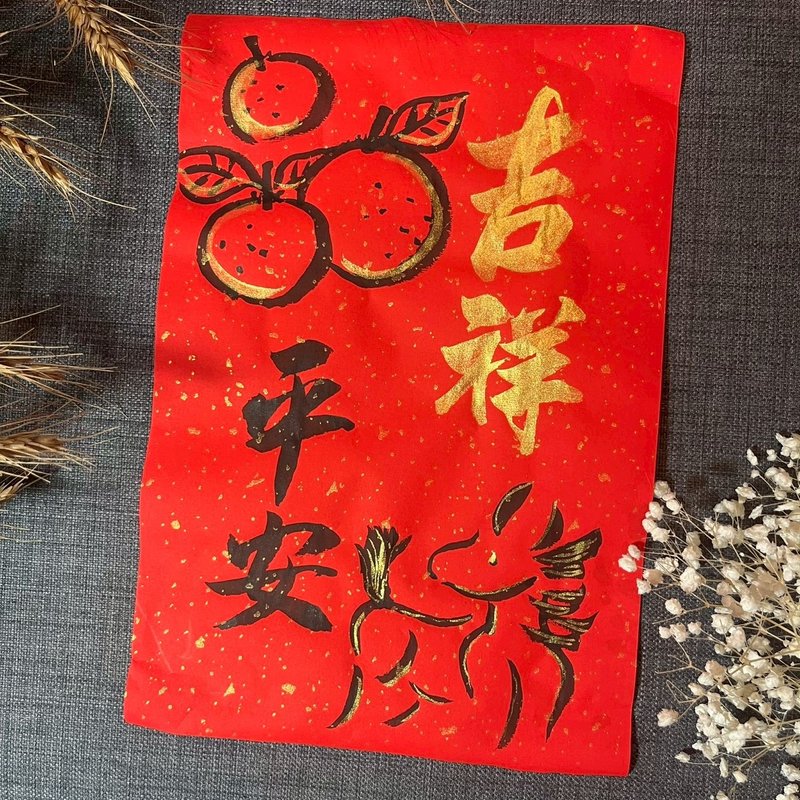 吉祥
平安